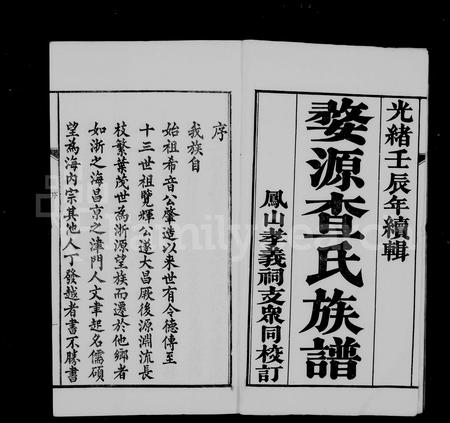 光緒壬辰年續輯
婺源查氏族譜
鳳山孝義祠支衆同校訂
序
我族自
始祖希音公肇造以來世有令德傳至
十三世祖覽輝公遂大昌厥後源淵流長
枝繁葉茂世為浙源望族而遷於他鄉者
如浙之海昌京之津門人文聿起名儒碩
望為海內宗其他人丁發越者書不勝書